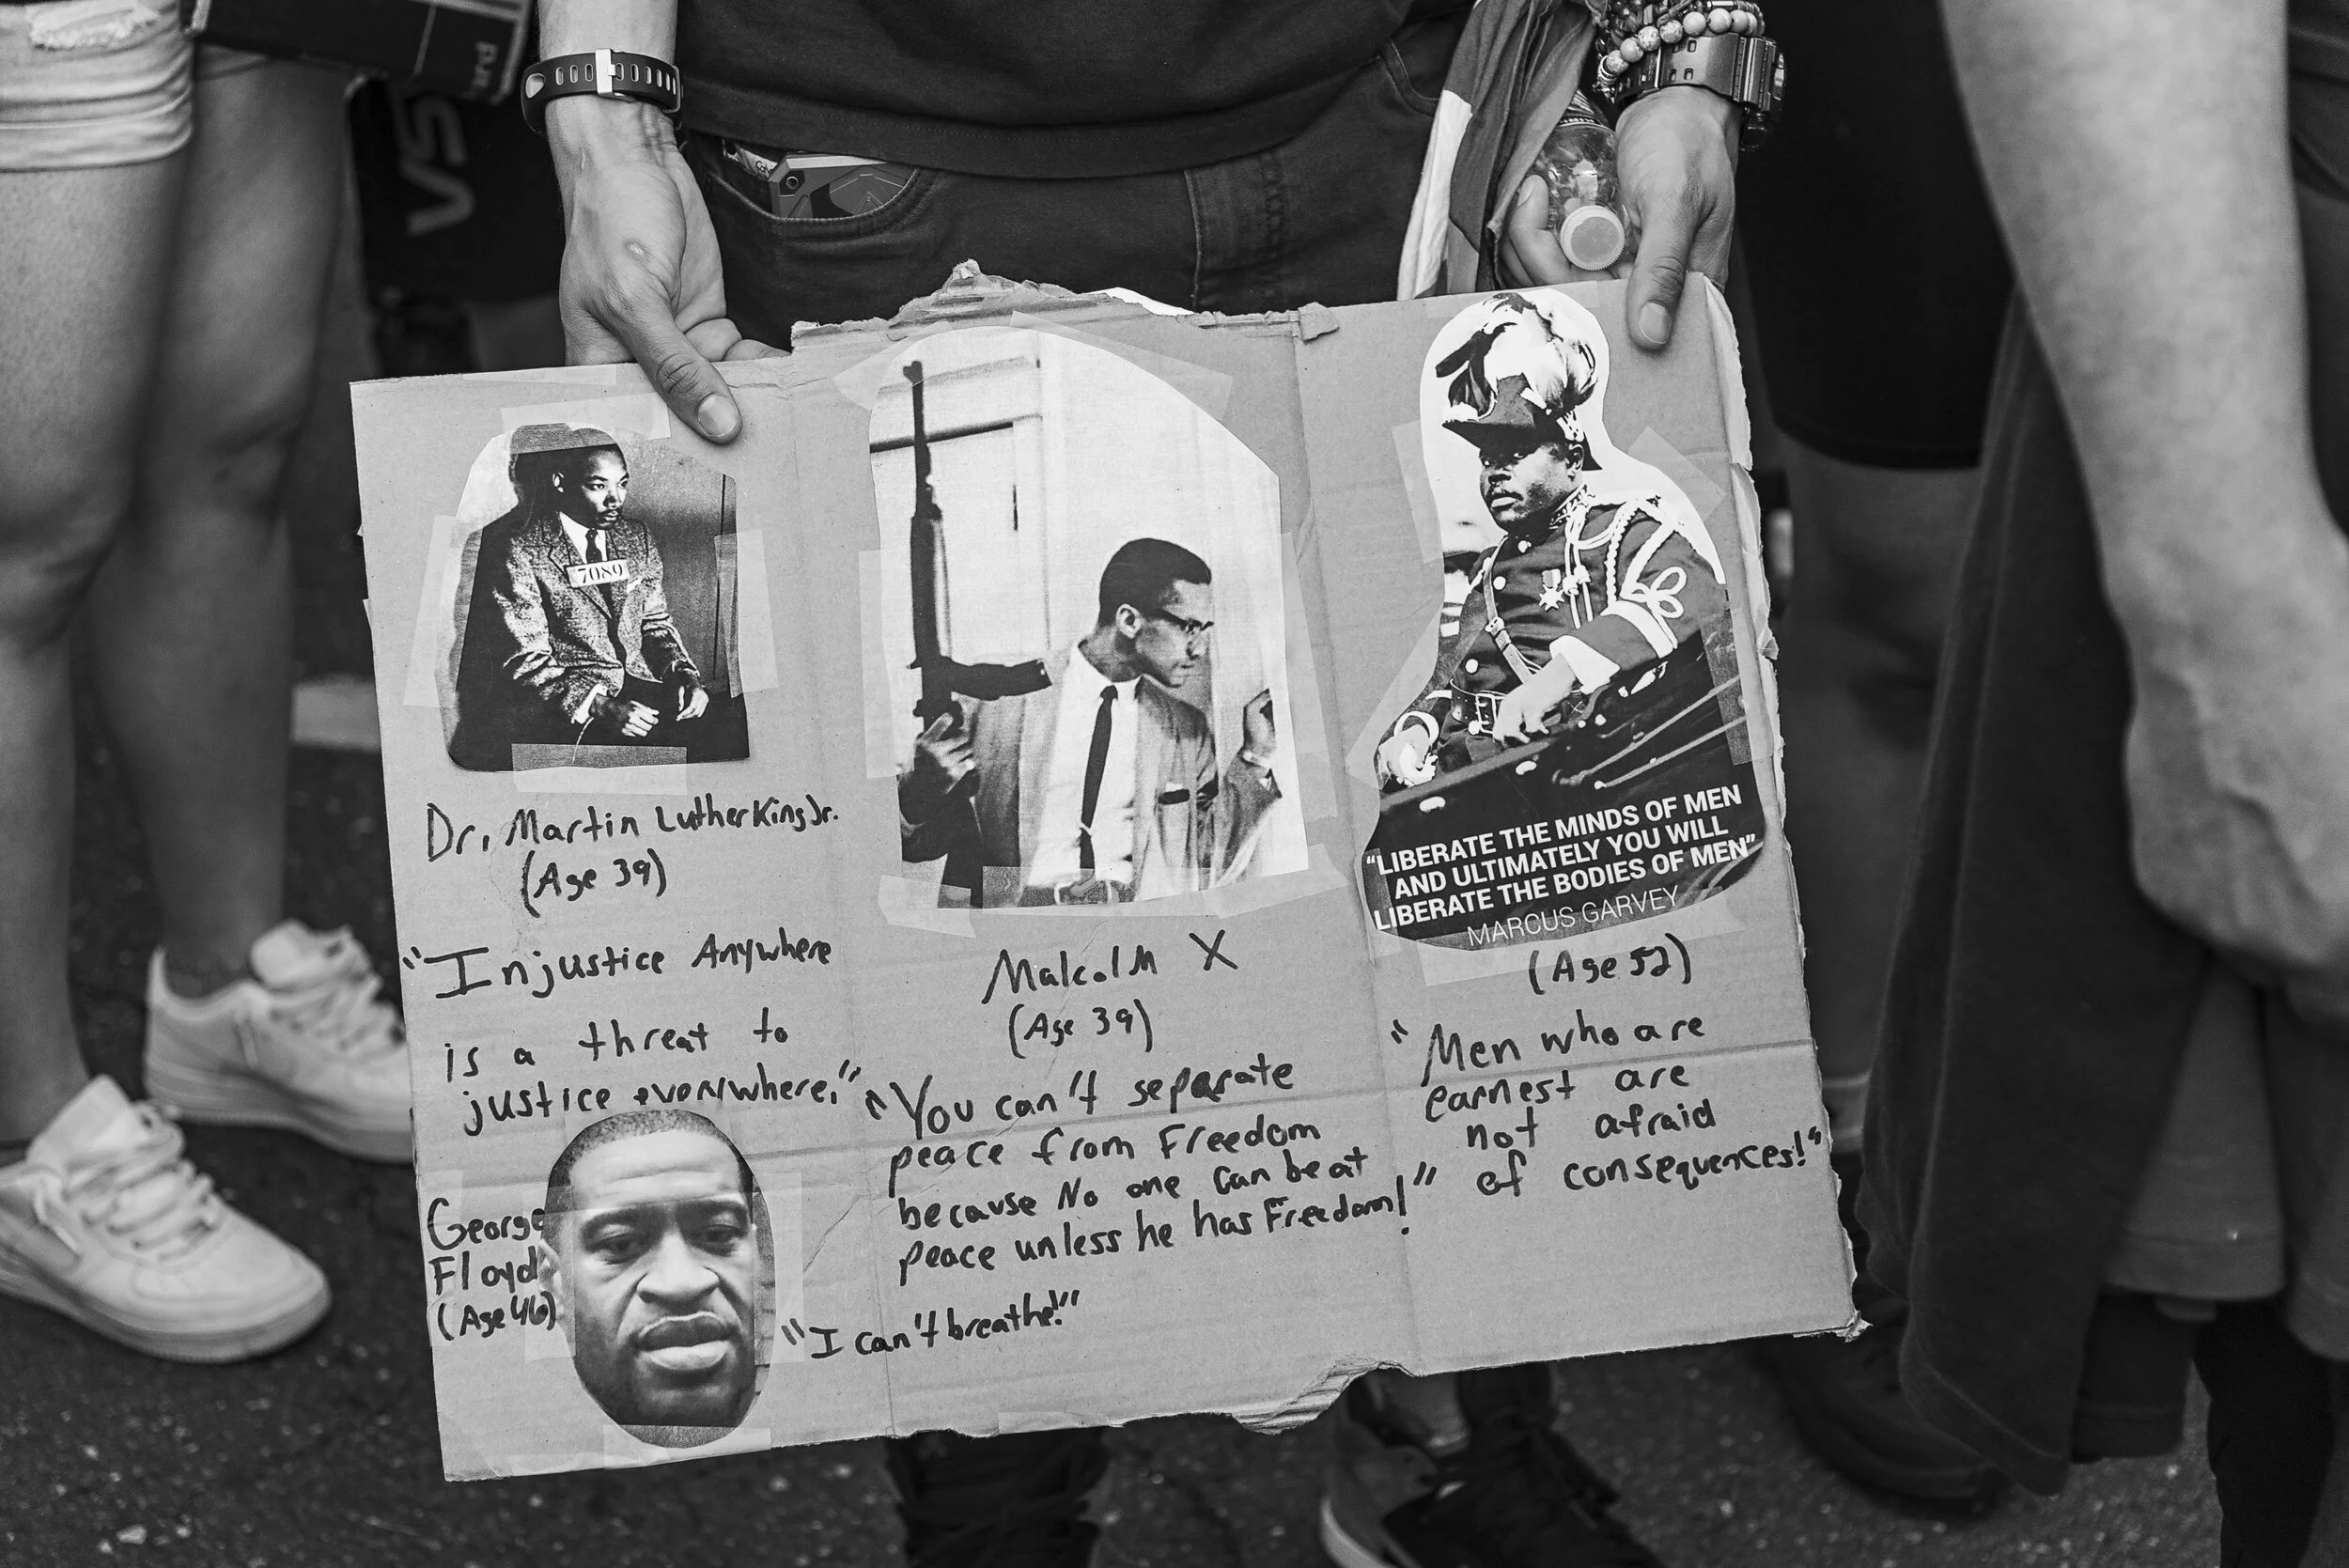 7089
Dr. Martin Luther King Jr.
(Age 39)
"Injustice Anywhere
is a threat to
justice everywhere."
George
Floyd
(Age 46)
Malcolm X
(Age 39)
"You can't separate
peace from Freedom
because No one can be at
peace unless he has Freedom!"
"I can't breathe!"
"LIBERATE THE MINDS OF MEN
AND ULTIMATELY YOU WILL
LIBERATE THE BODIES OF MEN"
MARCUS GARVEY
(Age 52)
"Men who are
earnest are
not afraid
of consequences!"